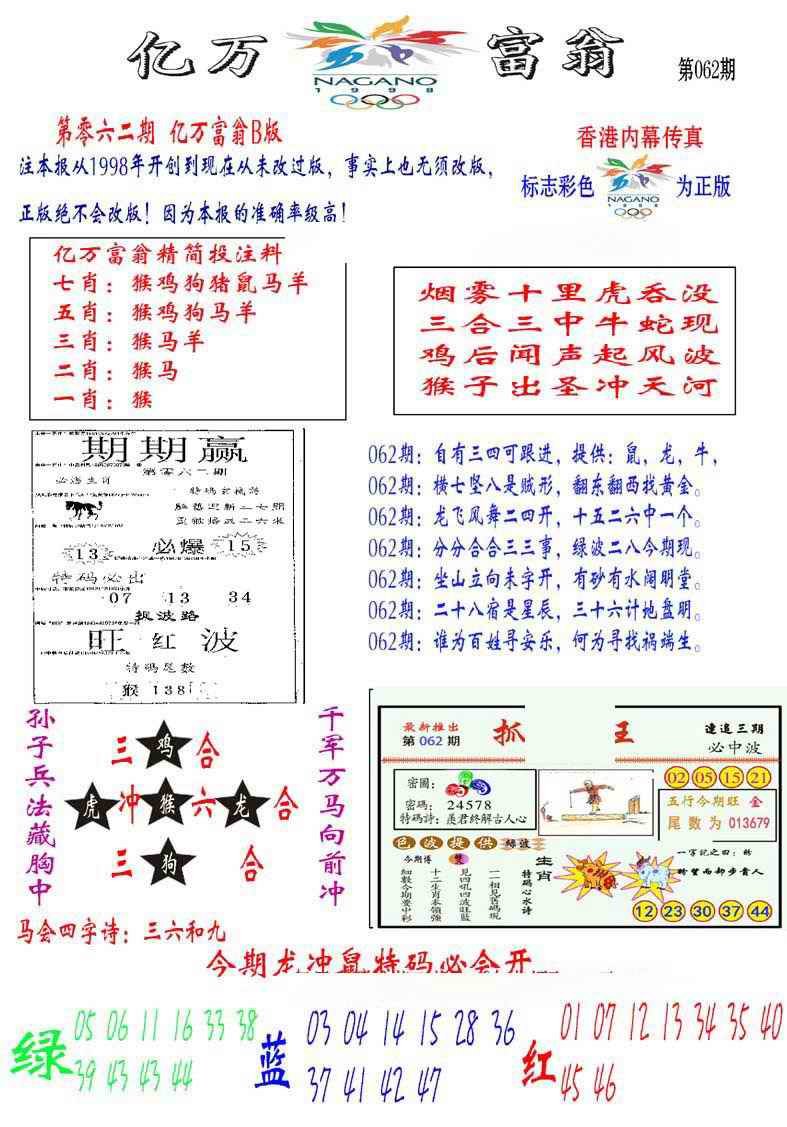 亿万
NAGANO
1998
富翁
第062期
第零六二期 亿万富翁B版
注本报从1998年开创到现在从未改过版，事实上也无须改版，
正版绝不会改版！因为本报的准确率级高！
香港内幕传真
标志彩色
NAGANO
1998
为正版
亿万富翁精简投注料
七肖：猴鸡狗猪鼠马羊
五肖：猴鸡狗马羊
三肖：猴马羊
二肖：猴马
一肖：猴
烟雾十里虎吞没
三合三中牛蛇现
鸡后闻声起风波
猴子出圣冲天河
期期赢
第零六二期
必逢生肖
特码玄机诗
13
必爆
15
特码必出
07 13 34
捉波路
旺红波
特码尾数
猴 138
062期：自有三四可跟进，提供：鼠，龙，牛，
062期：横七坚八是贼形，翻东翻西找黄金。
062期：龙飞风舞二四开，十五二六中一个。
062期：分分合合三三事，绿波二八今期现。
062期：坐山立向未字开，有砂有水阔明堂。
062期：二十八宿是星辰，三十六计地盘明。
062期：谁为百姓寻安乐，何为寻找祸端生。
孙子兵法藏胸中
三 鸡 合
虎 冲 猴 六 龙 合
三 狗 合
千军万马向前冲
马会四字诗：三六和九
最新推出
第 062 期
抓
王
连追三期
必中波
密图：
密码：24578
特码诗：羡君终解古人心
02 05 15 21
五行今期旺 金
尾数为 013679
色波提供 绿波
今期博
双
细数今期要中彩
十二生肖本领强
见四吼四波旺蓝
一二相见舊碼現
特码心水诗
生肖
一字记之曰：盼
盼望而却步贵人
12 23 30 37 44
今期龙冲鼠特码必会开
绿
05 06 11 16 33 38
39 43 43 44
蓝
03 04 14 15 28 36
37 41 42 47
红
01 07 12 13 34 35 40
45 46